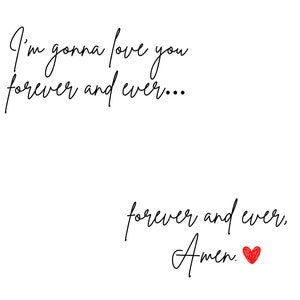 I'm gonna love you
forever and ever...
forever and ever,
Amen.